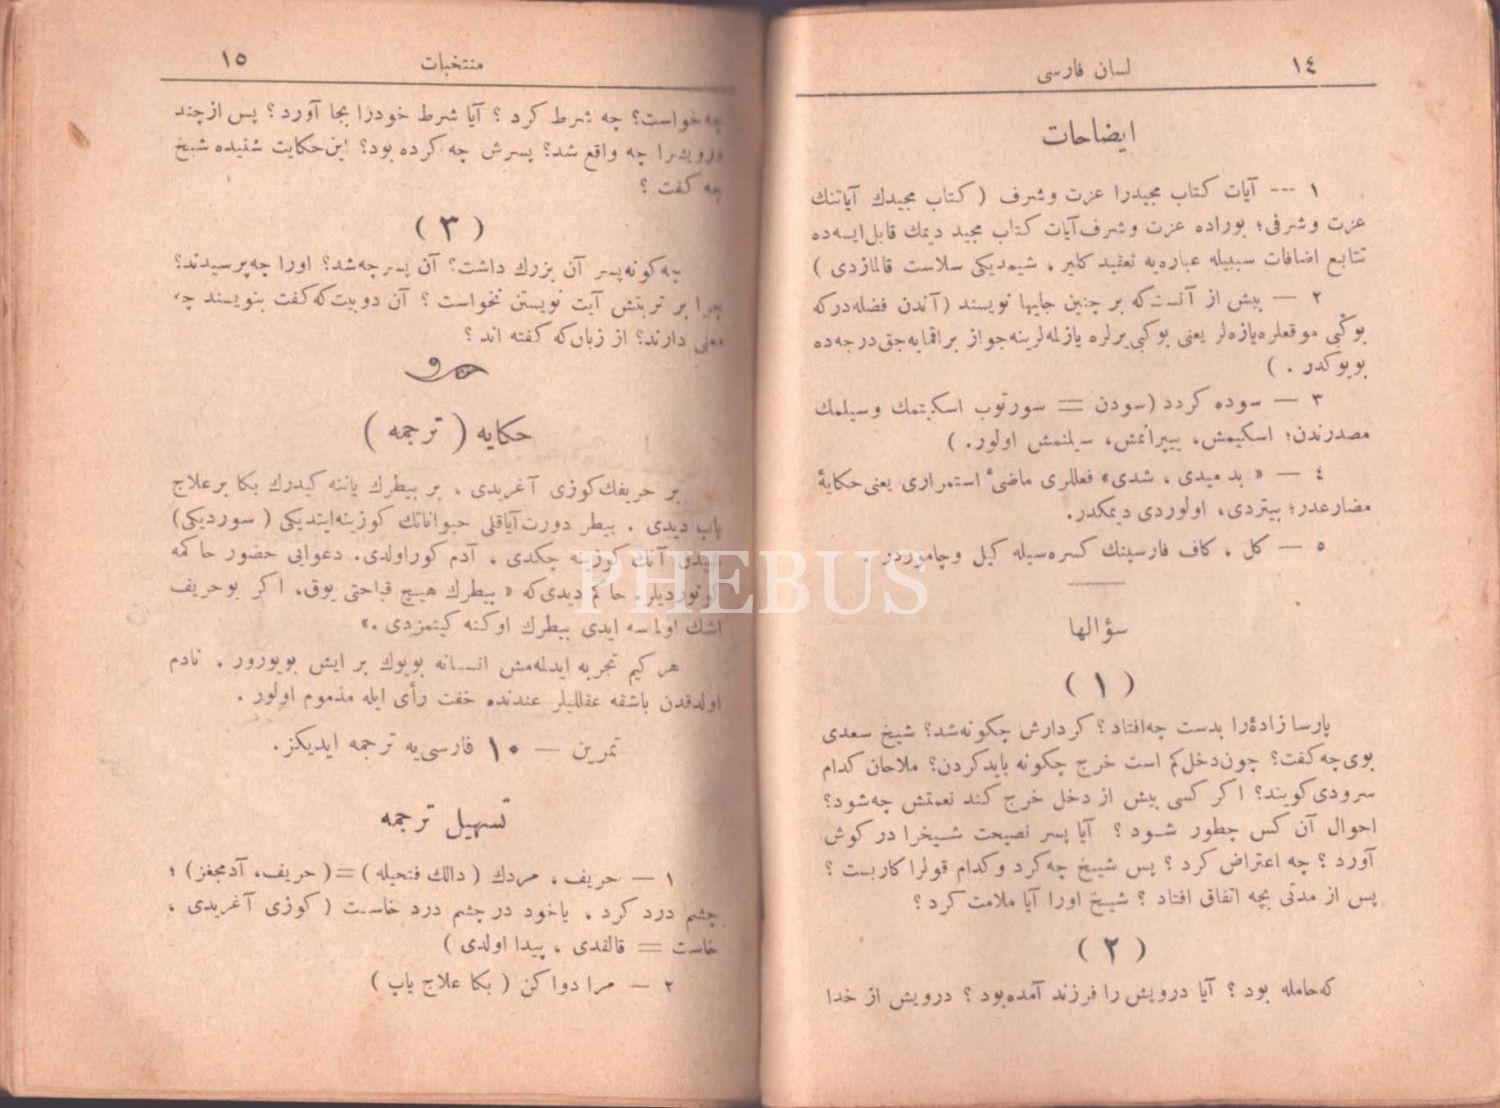 ١٤
لسان فارسی
ايضاحات
١ --- آيات كتاب مجيدرا عزت وشرف ( كتاب مجيدك آياتنك
عزت وشرفی؛ بوراده عزت وشرف آيات كتاب مجيد ديمك قابل ايسه ده
تتابع اضافات سببيله عباره يه تعقيد كلير ، شيمديكی سلاست قالمازدی )
٢ — بيش از آنست كه بر چنين جايها نويسند ( آندن فضله در كه
بوكبی موقعلره يازه لر يعنی بوكبی يرلره يازلمه لرينه جواز براقمايه جق درجه ده
بويوكدر . )
٣ — سوده كردد ( سودن = سورتوب اسكيتمك وسيلمك
مصدرندن؛ اسكيمش، ييپرانمش، سيلنمش اولور. )
٤ — « بدميدی ، شدی » فعللری ماضیٔ استمراری يعنی حكايۀ
مضارعدر؛ بيتردی، اولوردی ديمكدر.
٥ — كل ، كاف فارسينك كسره سيله كيل وچاموردر .
سؤالها
( ١ )
پارسا زادۀ را بدست چه افتاد ؟ كردارش چكونه شد؟ شيخ سعدی
بوی چه كفت؟ چون دخل كم است خرج چكونه بايد كردن؟ ملاحان كدام
سرودی كويند؟ اكر كسی بيش از دخل خرج كند نعمتش چه شود؟
احوال آن كس چطور شود ؟ آيا پسر نصيحت شيخرا در كوش
آورد ؟ چه اعتراض كرد ؟ پس شيخ چه كرد وكدام قولرا كاربست ؟
پس از مدتی بچه اتفاق افتاد ؟ شيخ اورا آيا ملامت كرد ؟
( ٢ )
كه حامله بود ؟ آيا درويش را فرزند آمده بود ؟ درويش از خدا
منتخبات
١٥
چه خواست؟ چه شرط كرد ؟ آيا شرط خودرا بجا آورد ؟ پس از چند
درويشرا چه واقع شد؟ پسرش چه كرده بود؟ اين حكايت شنيده شيخ
چه كفت ؟
( ٣ )
چه كونه پسر آن بزرك داشت؟ آن پسر چه شد؟ اورا چه پرسيدند؟
چرا بر تربتش آيت نويستن نخواست ؟ آن دو بيت كه كفت بنويسند چه
معنی دارند؟ از زبان كه كفته اند ؟
حكايه ( ترجمه )
بر حريفك كوزی آغريدی ، بر بيطرك ياننه كيدرك بكا بر علاج
ياپ ديدی . بيطر دورت آياقلی حيواناتك كوزينه ايتديكی ( سورديكی )
شيدن آنك كوزينه چكدی ، آدم كور اولدی. دعوايی حضور حاكمه
كوتورديلر. حاكم ديدی كه « بيطرك هيچ قباحتی يوق، اكر بو حريف
اشك اولماسه ايدی بيطرك اوكنه كيتمزدی .»
هر كيم تجربه ايدلمه مش انسانه بويوك بر ايش بويورور ، نادم
اولدقدن باشقه عقلليلر عندنده خفت رأی ايله مذموم اولور .
تمرين — ١٠ فارسی يه ترجمه ايديكز.
تسهيل ترجمه
١ — حريف ، مردك ( دالك فتحيله ) = ( حريف، آدمجغز ) ؛
چشم درد كرد ، ياخود در چشم درد خاست ( كوزی آغريدی ،
خاست = قالقدی ، پيدا اولدی )
٢ — مرا دوا كن ( بكا علاج ياپ )
PHEBUS